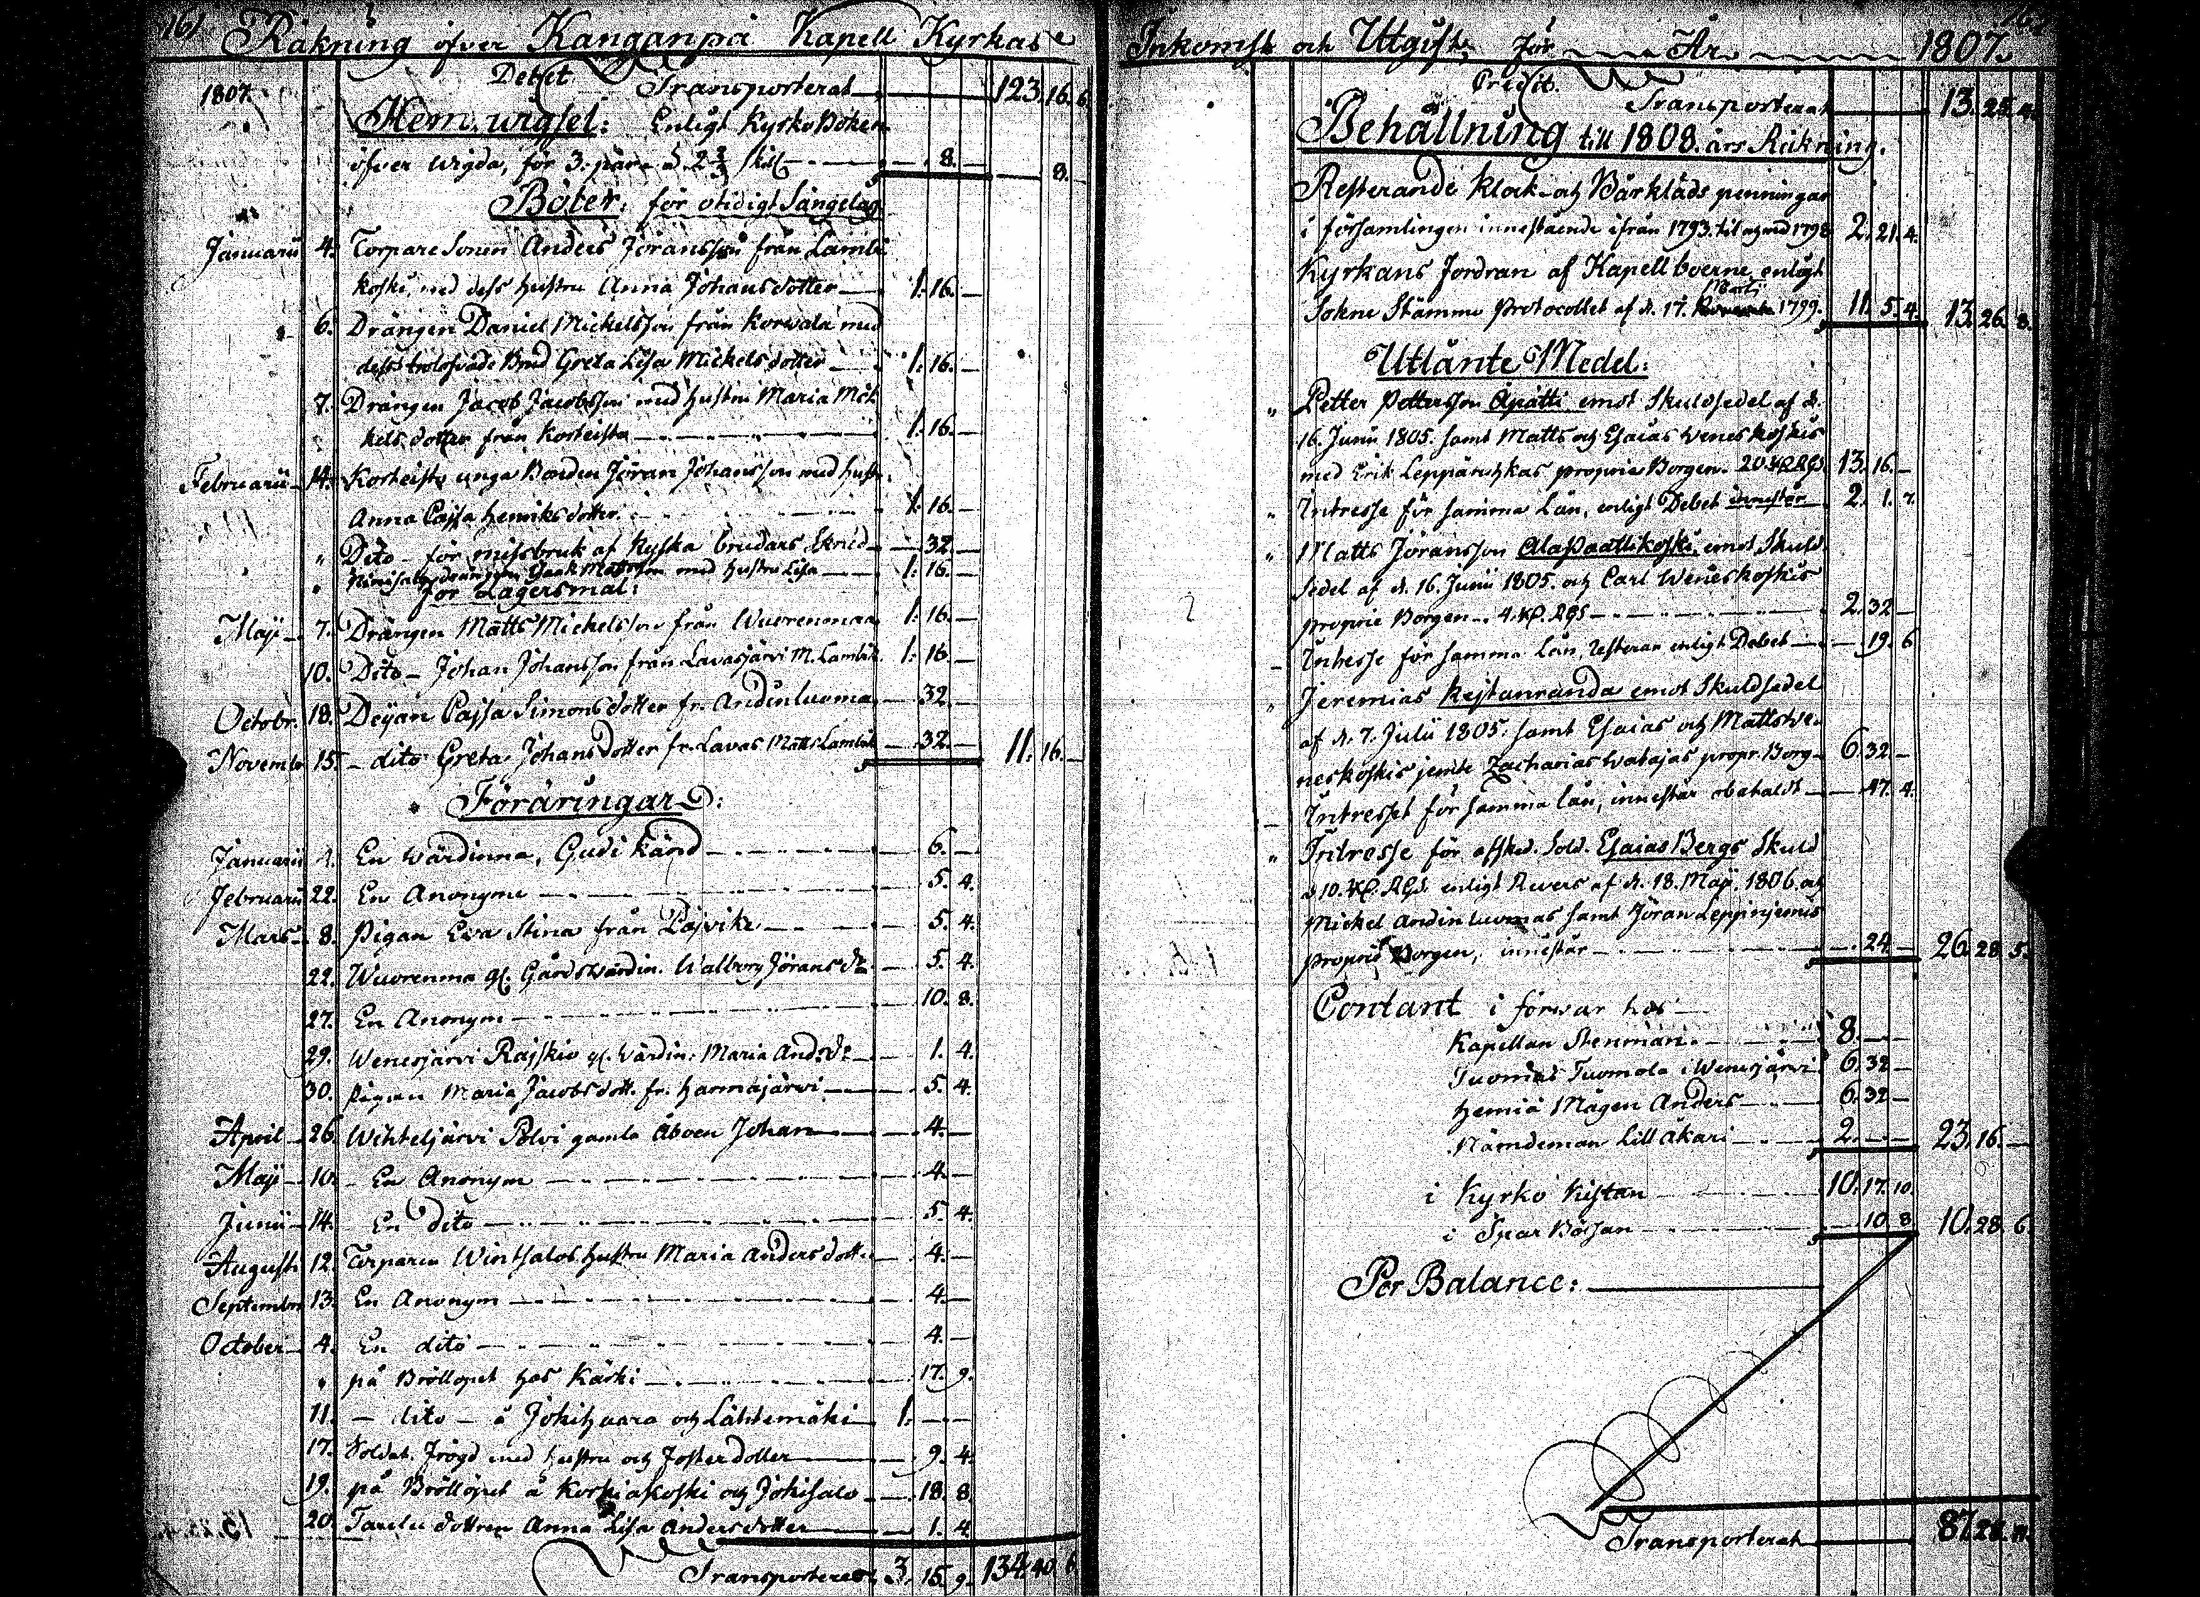 161
Räkning öfver Kanganpä Kapell Kyrkas
1807. Debet Transporterat 123. 16. 6.
Hem wigsel: Enligt Kyrko Boken
öfver wigda, för 3. par a 2 2/3 skil 8. 8.
Böter, för otidigt Sängelag
Januarii 4. Torpare Sonen Anders Jöransson från Lambi
koski, med dess hustru Anna Johansdotter 1. 16. —
6. Drängen Daniel Mickelsson från Korwala med
dess trolofvade Brud Greta Lisa Mickelsdotter 1. 16. —
7. Drängen Jacob Jacobsson med hustru Maria Mic
kels dotter från Korteista 1. 16. —
Februarii 14. Korteisto unga Bonden Jöran Johansson med hustr.
Anna Cajsa Henriksdotter 1. 16. —
" Dito för missbruk af Kyrko brudars Skrud 32. —
" drängen Isaak Mattsson med hustru Lisa 1. 16. —
för Lägersmål:
Maji 7. Drängen Matts Mickelsson från Wuorenmaa 1. 16. —
10. Dito Johan Johansson från Lavasjärvi M. Lambik. 1. 16. —
Octobr. 18. Deijan Cajsa Simonsdotter fr. Andinluoma 32. —
Novembr 15. — dito Greta Johansdotter fr. Lavas Matts Lambik 32. — 11. 16. —
Föräringar:
Januarii 4. En Wärdinna, Gudi känd 6. —
Februarii 22. En Anonyme 5. 4.
Mars 8. Pigan Eva Stina från Päjvike 5. 4.
22. Wuorenma gl. Gårdswärdin. Walborg Jörans dr 5. 4.
27. En Anonym 10. 8.
29. Wenesjärvi Rajskio gl. Wärdin: Maria Ands dr 1. 4.
30. Pigan Maria Jacobsdott. fr. Harmajärvi 5. 4.
April 26. Wihteljärvi Polvi gamla Åboen Johan 4. —
Maji 10. — En Anonym 4. —
Junii 14. En dito 5. 4.
Augusti 12. Torparen Wintsalos hustru Maria Andersdotter 4. —
Septembr 13. En Anonym 4. —
October 4. En dito 4. —
" på Bröllopet hos Käski 17. 9.
11. — dito — å Jokihaara och Lähtemäki 1. — —
17. Soldat. Frögd med hustru och Fosterdotter 9. 4.
19. på Bröllopet å Korkiakoski och Jokisalo 18. 8.
20. dottren Anna Lisa Andersdotter 1. 4.
Transporteras 3. 15. 9. 134. 40. 6.
Inkomst och Utgift för År 1807.
Credit.
Transporterat 13. 25. 4.
Behållning till 1808. års Räkning.
Resterande Klock och Bårkläds penningar
i församlingen innestående ifrån 1793. til och med 1798 2. 21. 4.
Kyrkans Fordran af Kapellboerne, enligt
Martii
Sokne Stämmo Protocollet af d. 17. 1799. 11. 5. 4. 13. 26. 8.
Utlånte Medel:
" Petter Pettersson Äpätti emot Skuldsedel af d.
16. Junii 1805. samt Matts och Esaias Weneskoskis
med Erik Leppänchkas proprie Borgen. 20. Rd. RGS. 13. 16. —
" Intresse för samma Lån, enligt Debet innestår 2. 1. 7.
" Matts Jöransson Alapaattikoski, emot Skuld
sedel af d. 16. Junii 1805. och Carl Weneskoskis
proprie Borgen. 4. Rd. RGS 2. 32. —
— Intresse för samma Lån, resterar enligt Debet 19. 6.
" Jeremias Kejtanranda emot Skuldsedel
af d. 7. Julii 1805. samt Esaias och Matts We-
neskoskis jemte Zacharias Watajas propr. Borg. 6. 32. —
— Intresset för samma lån, innestår obetaldt 47. 4.
" Intresse för afsked. Sold. Esaias Bergs Skuld
a 10. Rd. RGS. enligt Revers af d. 18. Maji 1806. och
Mickel Andinluomas samt Jöran Leppinjemis
proprie Borgen, innestår 24. — 26. 28. 5.
Contant i förwar hos
Kapellan Stenman 8. — —
Tuomas Tuomola i Wenesjärvi 6. 32. —
Hemiä Mågen Anders 6. 32. —
Nämdeman Lill Äkäri 2. — — 23. 16. —
i Kyrko Kistan 10. 17. 10.
i Spar Bössan 10. 8. 10. 28. 6.
Per Balance:
Transporterat 87. 28. 11.